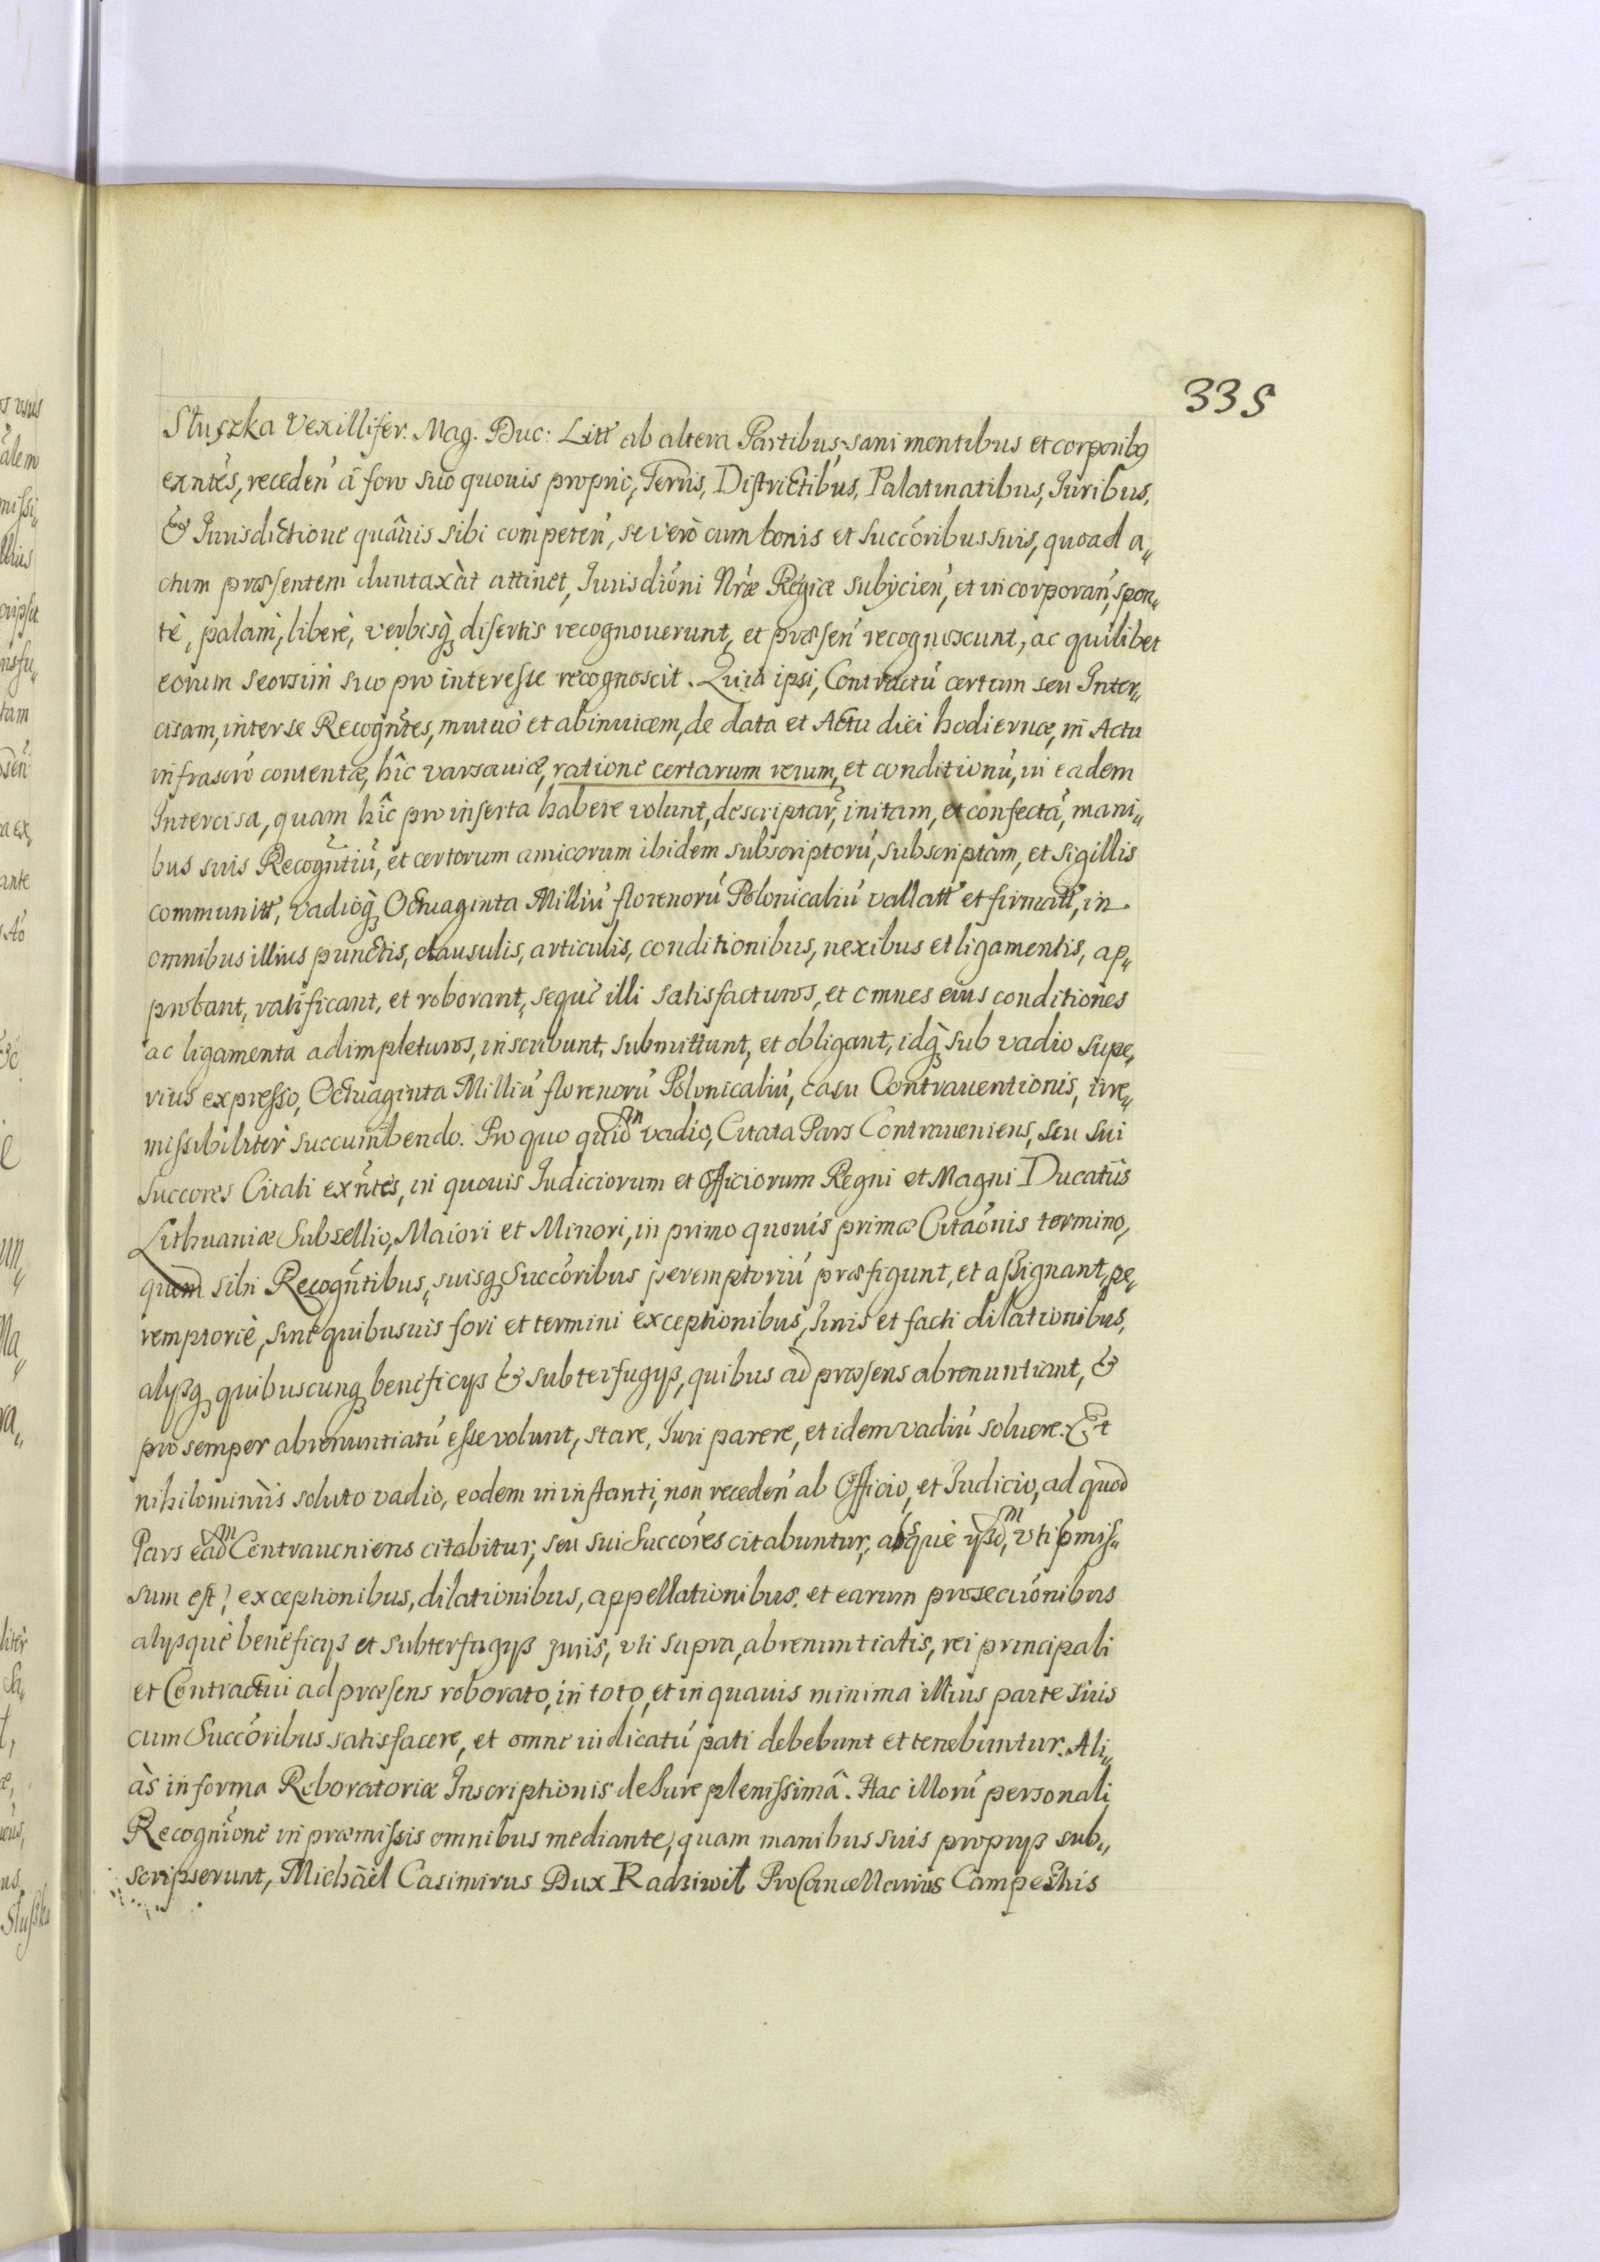 335
Słuszka Vexillifer. Mag. Duc: Litt ab altera Partibus, sani mentibus et corporibq
exntes, receden á foro suo quouis proprio, Terris, Districtibus, Palatinatibus, Juribus,
& Jurisdictione quâuis sibi competen, se verò cum bonis et succóribus suis, quoad a„
ctum præsentem duntaxàt attinet, Jurisdióni Nræ Regiæ subÿcien, et incorporan, spon„
tè, palam, liberè, verbisq disertis recognouerunt, et præsen recognoscunt, ac quilibet
eorum seorsim suo pro interesse recognoscit. Quià ipsi, Contractú certum seu Inter„
cisam, inter se Recogntes, mutuò et abinuicem, de data et Actu diei hodiernæ, in Actu
infrascro contentæ, hîc varsauiæ, ratione certarum rerum, et conditionú, in eadem
Intercisa, quam hîc pro inserta habere volunt, descriptar, initam, et confectá, mani„
bus suis Recogntiú, et certorum amicorum ibidem subscriptorú, subscriptam, et sigillis
communitt, vadioq Octuaginta Milliú florenorú Polonicaliú vallatt et firmatt, in
omnibus illius punctis, clausulis, articulis, conditionibus, nexibus et ligamentis, ap„
probant, ratificant, et roborant, sequè illi satisfacturos, et omnes eius conditiones
ac ligamenta adimpleturos, inscribunt, submittunt, et obligant, idq sub vadio supe„
rius expresso, Octuaginta Milliú florenorú Polonicaliú, casu Contrauentionis, irre„
missibilitèr succumbendo. Pro quo quidm vadio, Citata Pars Contraueniens, seu sui
Succores Citati exntes, in quouis Judiciorum et Officiorum Regni et Magni Ducatûs
Lithuaniæ Subsellio, Maiori et Minori, in primo quouis primæ Citaónis termino,
quem sibi Recogntibus, suisq Succóribus peremptoriú præfigunt, et assignant, pe„
remptoriè, sine quibusuis fori et termini exceptionibus, Juris et facti dilationibus,
alÿsq quibuscunq beneficÿs & subterfugÿs, quibus ad præsens abrenuntiant, &
pro semper abrenuntiatú esse volunt, stare, Juri parere, et idem vadiú soluere. Et
nihilominùs soluto vadio, eodem in instanti, non receden ab Officio, et Judicio, ad quod
Pars eadm Contraueniens citabitur, seu sui Succóres citabuntur, absquè ÿsdm, vti pmis„
sum est, exceptionibus, dilationibus, appellationibus, et earum prosecuónibus
alÿsquè beneficÿs et subterfugÿs juris, vti supra, abrenuntiatis, rei principali
et Contractui ad præsens roborato, in toto, et in quauis minima illius parte suis
cum Succóribus satisfacere, et omne iudicatú pati debebunt et tenebuntur. Ali„
às in forma Roboratoriæ Inscriptionis de Jure plenissimâ. Hac illorú personali
Recognióne in præmissis omnibus mediante, quam manibus suis proprÿs sub„
scripserunt, Michäel Casimirus Dux Radziwił ProCancellarius Campestris